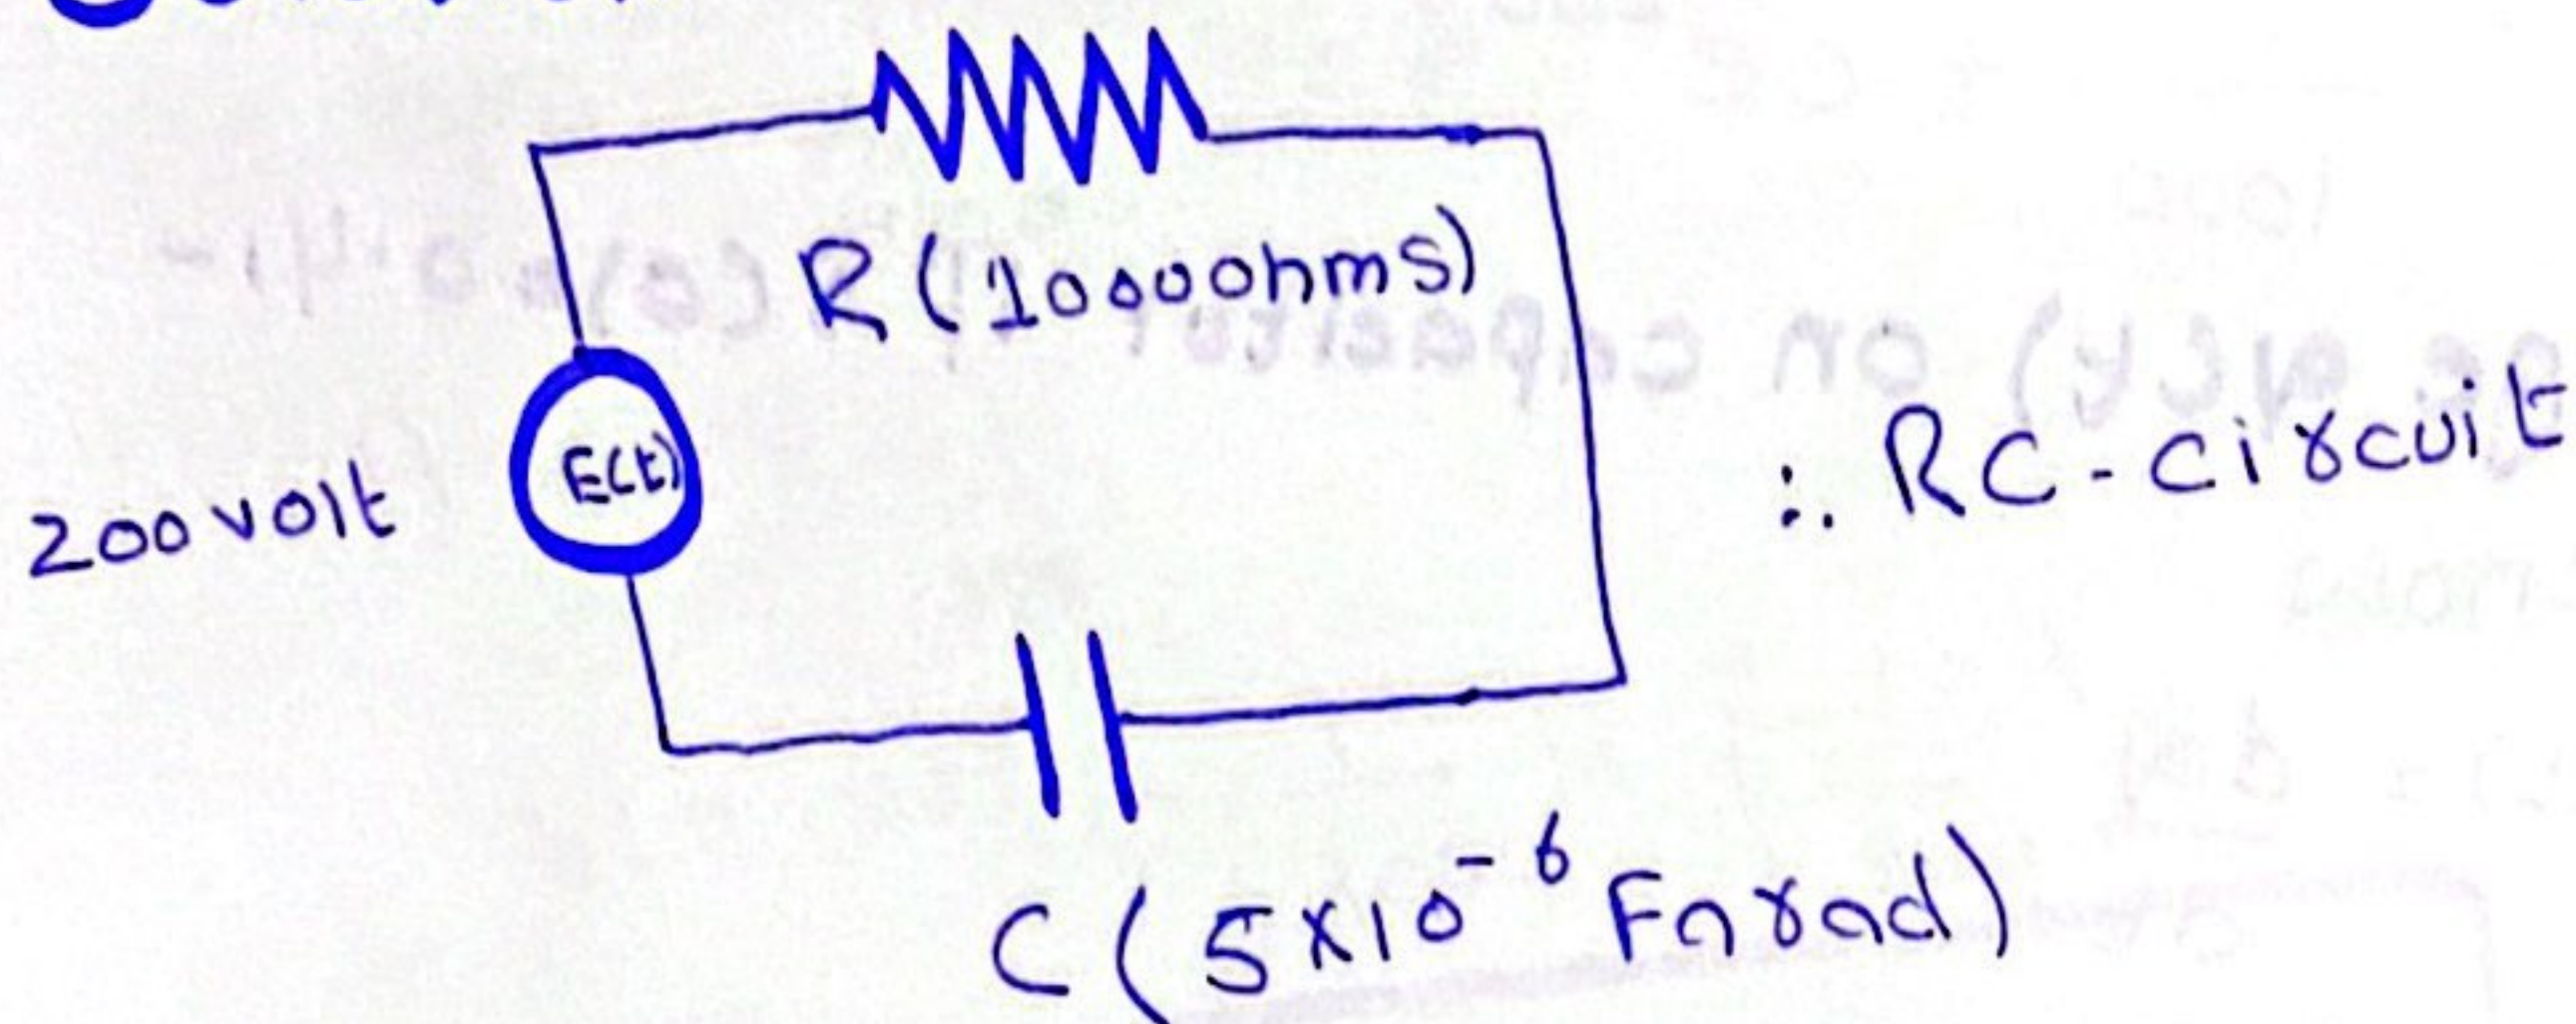 R (1000ohms)
E(t)
200 volt
∴ RC-circuit
C (5×10⁻⁶ Farad)